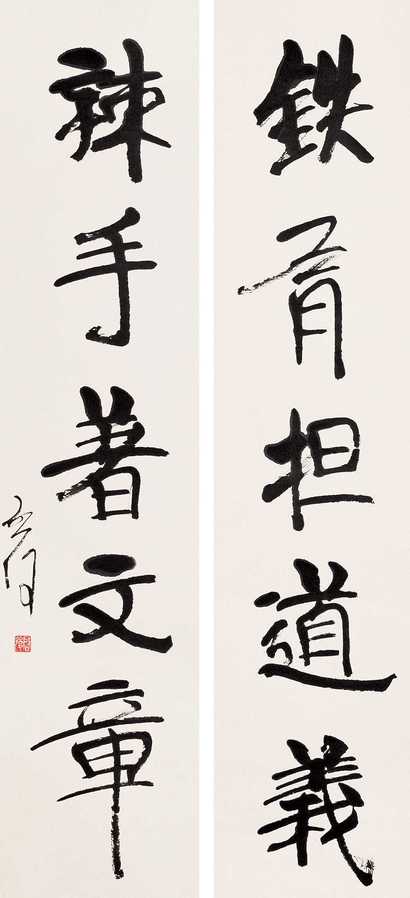 铁肩担道義
辣手著文章